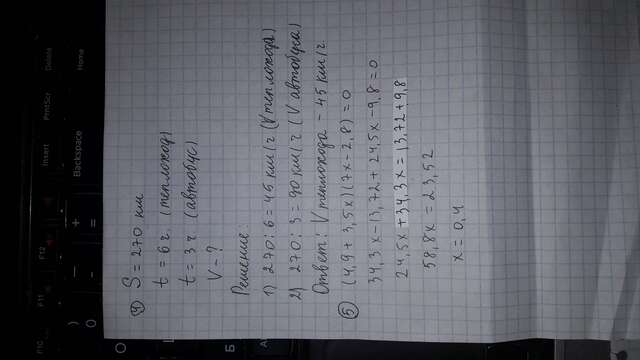 ④ S = 270 км
t = 6 ч. (теплоход)
t = 3 ч (автобус)
V - ?
Решение:
1) 270 : 6 = 45 км/ч (V теплохода)
2) 270 : 3 = 90 км/ч (V автобуса)
Ответ: V теплохода - 45 км/ч.
⑤ (4,9 + 3,5x)(7x - 2,8) = 0
34,3x - 13,72 + 24,5x - 9,8 = 0
24,5x + 34,3x = 13,72 + 9,8
58,8x = 23,52
x = 0,4
Delete
Home
PrtScr
Insert
Backspace
F12
F11
F10
+
=
-
)
0
Б